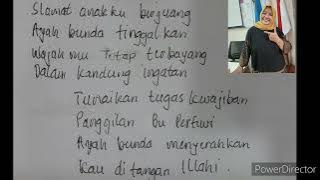 Slamat anakku berjuang
Ayah bunda tinggalkan
Wajahmu tetap terbayang
Dalam kandung ingatan
Tunaikan tugas kewajiban
Panggilan Bu Pertiwi
Ayah bunda menyerahkan
Kau ditangan Illahi.
PowerDirector